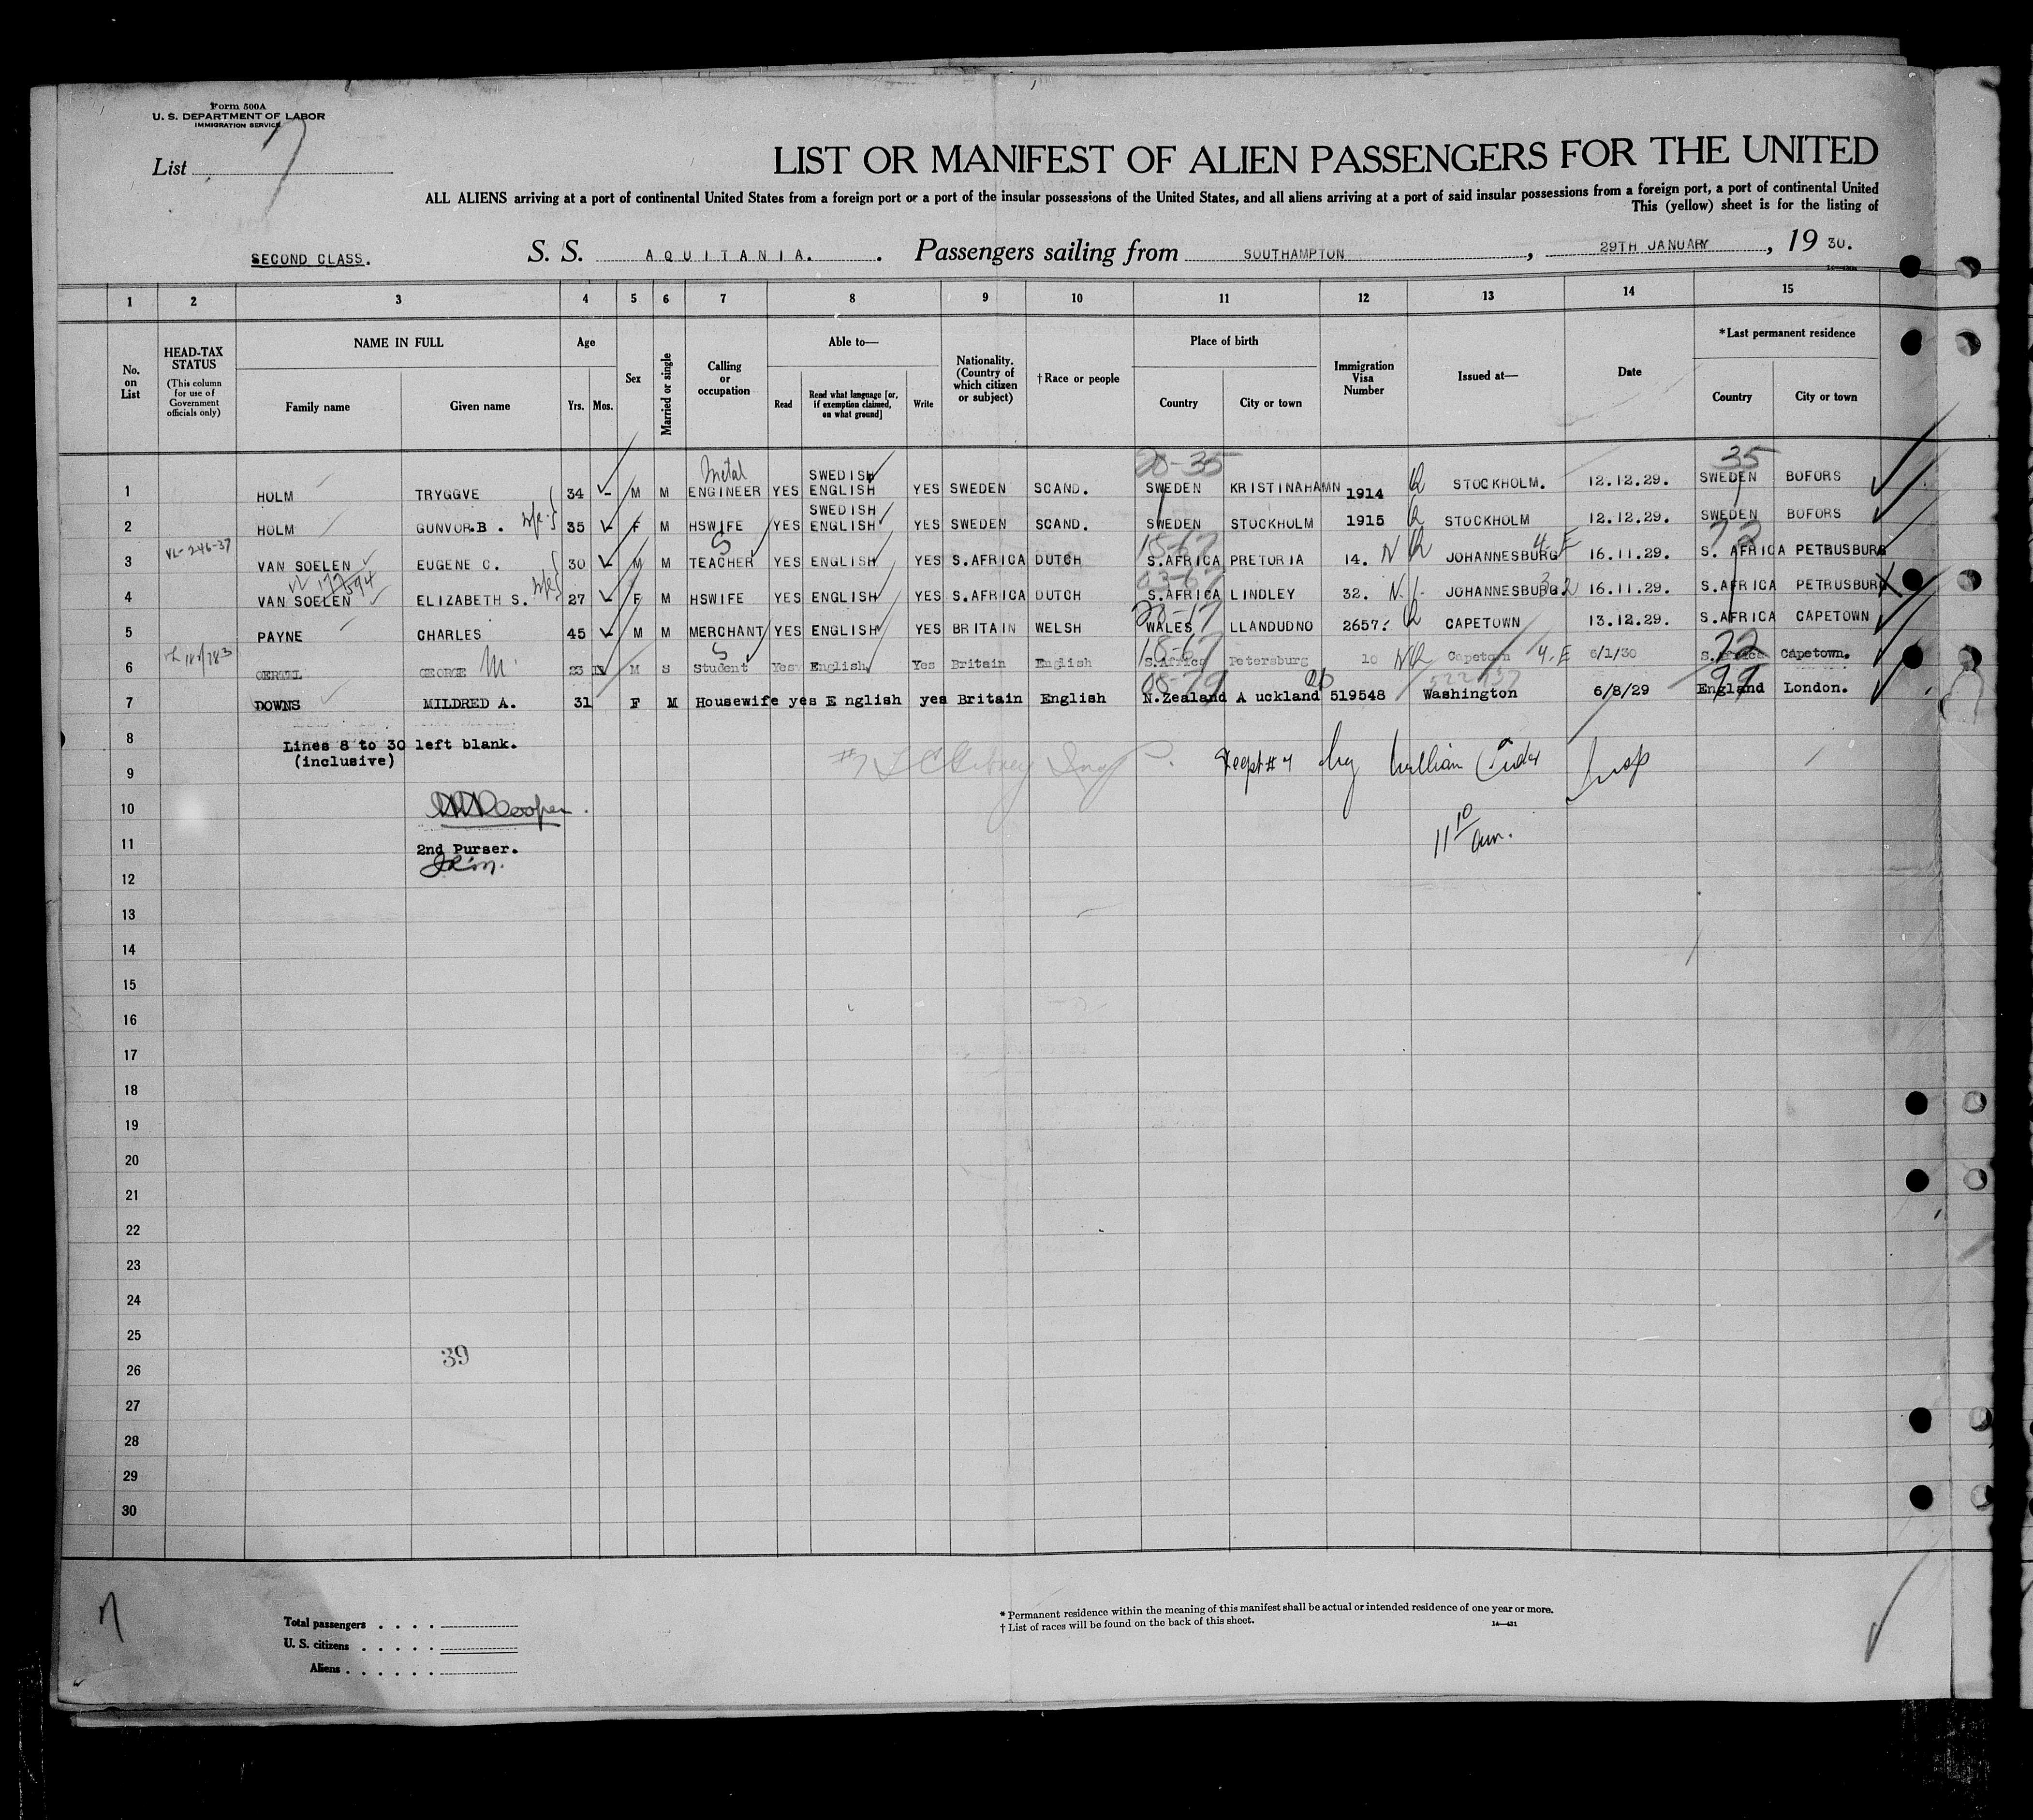 Form 500A
U. S. DEPARTMENT OF LABOR
IMMIGRATION SERVICE
List 7
LIST OR MANIFEST OF ALIEN PASSENGERS FOR THE UNITED
ALL ALIENS arriving at a port of continental United States from a foreign port or a port of the insular possessions of the United States, and all aliens arriving at a port of said insular possessions from a foreign port, a port of continental United
This (yellow) sheet is for the listing of
SECOND CLASS. S. S. AQUITANIA. Passengers sailing from SOUTHAMPTON, 29TH JANUARY, 19 30.
1 2 3 4 5 6 7 8 9 10 11 12 13 14 15
No. on List
HEAD-TAX STATUS
(This column for use of Government officials only)
NAME IN FULL
Family name Given name
Age
Yrs. Mos.
Sex
Married or single
Calling or occupation
Able to—
Read
Read what language [or, if exemption claimed, on what ground]
Write
Nationality. (Country of which citizen or subject)
†Race or people
Place of birth
Country City or town
Immigration Visa Number
Issued at—
Date
*Last permanent residence
Country City or town
Metal 20-35 35
1 HOLM TRYGGVE 34 M M ENGINEER YES SWEDISH ENGLISH YES SWEDEN SCAND. SWEDEN KRISTINAHAMN 1914 STOCKHOLM. 12.12.29. SWEDEN BOFORS
2 HOLM GUNVOR.B. wife 35 F M HSWIFE YES SWEDISH ENGLISH YES SWEDEN SCAND. SWEDEN STOCKHOLM 1915 STOCKHOLM 12.12.29. SWEDEN BOFORS
VL-246-37 S 15-67 72
3 VAN SOELEN EUGENE C. 30 M M TEACHER YES ENGLISH YES S.AFRICA DUTCH S.AFRICA PRETORIA 14. N JOHANNESBURG 4.E 16.11.29. S. AFRICA PETRUSBURG
4 VAN SOELEN ELIZABETH S. wife 27 F M HSWIFE YES ENGLISH YES S.AFRICA DUTCH S.AFRICA LINDLEY 32. N. JOHANNESBURG 16.11.29. S.AFRICA PETRUSBURG
5 PAYNE CHARLES 45 M M MERCHANT YES ENGLISH YES BRITAIN WELSH WALES LLANDUDNO 2657. CAPETOWN 13.12.29. S.AFRICA CAPETOWN
S 15-67 72
6 OERTEL GEORGE M. 23 M S Student Yes English Yes Britain English S.Africa Petersburg 10 N Capetown 4.E 6/1/30 S.Africa Capetown.
7 DOWNS MILDRED A. 31 F M Housewife yes E nglish yes Britain English N.Zealand A uckland 519548 Washington 6/8/29 England London.
8 Lines 8 to 30 left blank.
(inclusive)
9
#4 by William Insp
10 Cooper.
11 2nd Purser.
11 10 am.
12
13
14
15
16
17
18
19
20
21
22
23
24
25
26
39
27
28
29
30
Total passengers
U. S. citizens
Aliens
* Permanent residence within the meaning of this manifest shall be actual or intended residence of one year or more.
† List of races will be found on the back of this sheet.